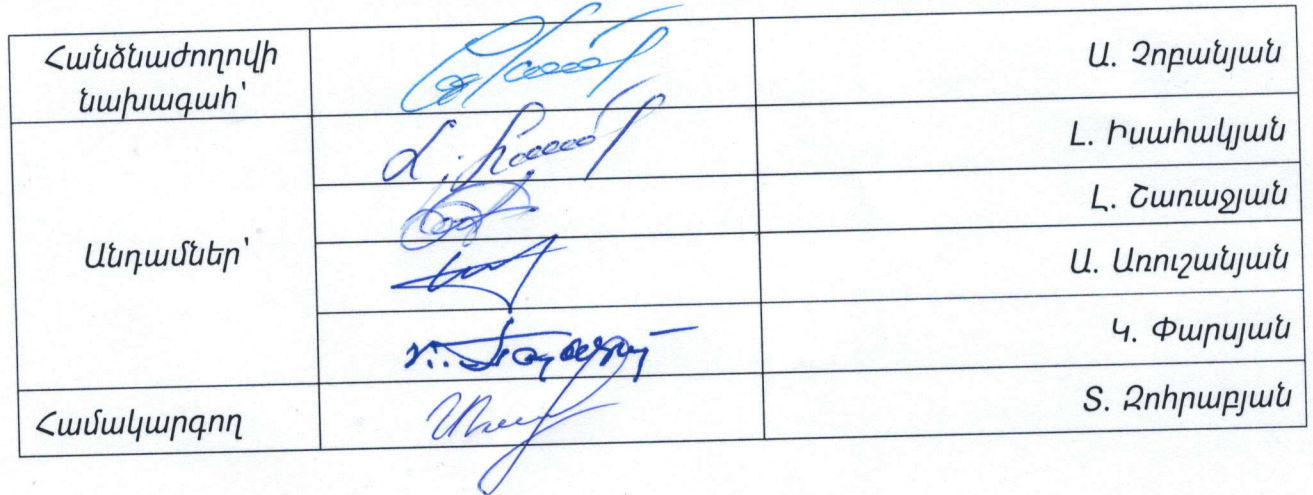 Հանձնաժողովի
նախագահ՝
Ա. Չոբանյան
Լ. Իսահակյան
Լ. Շառաջյան
Անդամներ՝
Ա. Առուշանյան
Կ. Փարսյան
Համակարգող
Տ. Զոհրաբյան